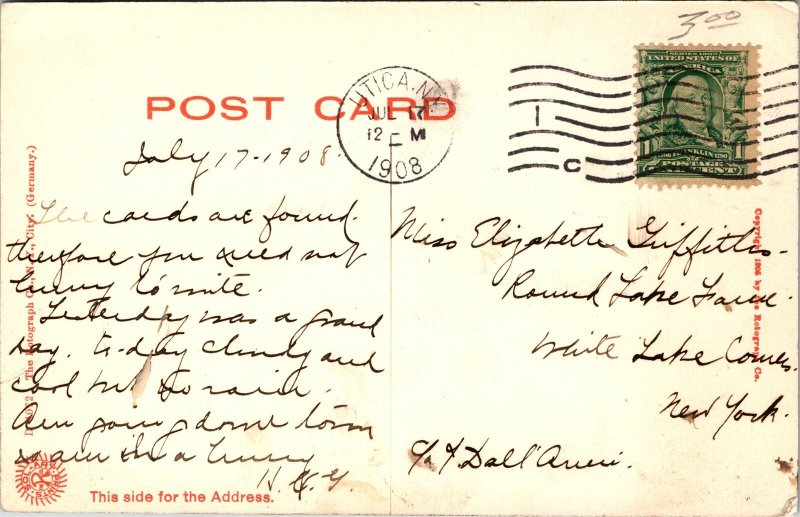 3.00
SERIES 1902
UNITED STATES OF
AMERICA
FRANKLIN
POSTAGE
1 CENT 1
POST CARD
UTICA, N.Y.
JUL 17
12 M
1908
1
C
July 17-1908.
The cards are found.
therefore you need not
hurry to write.
Yesterday was a grand
day. to-day cloudy and
cool but no rain.
Am going down town
so am in a hurry
H. E. G.
Miss Elizabeth Griffiths.
Round Lake Farm.
White Lake Corners.
New York.
c/o Dall'
The Rotograph Co., N.Y. City. (Germany.)
Copyright 1905 by the Rotograph Co.
This side for the Address.